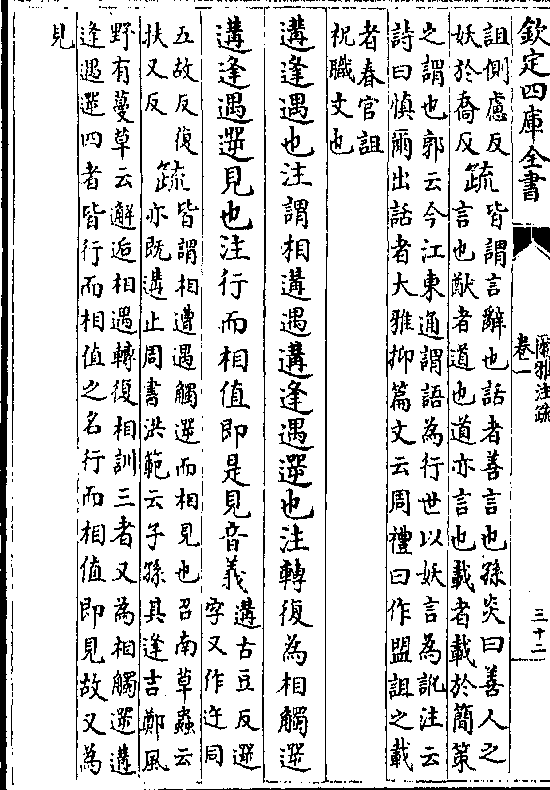 欽定四庫全書
爾雅注疏
卷一
三十二
詛側慮反
妖於喬反
疏
皆謂言辭也話者善言也孫炎曰善人之
言也猷者道也道亦言也載者載於簡策
之謂也郭云今江東通謂語為行世以妖言為訛注云
詩曰慎爾出話者大雅抑篇文云周禮曰作盟詛之載
者春官詛
祝職文也
遘逢遇也注謂相遘遇遘逢遇遻也注轉復為相觸遻
遘逢遇遻見也注行而相值即是見音義
遘古豆反遻
字又作迕同
五故反復
扶又反
疏
皆謂相遭遇觸遻而相見也召南草蟲云
亦既遘止周書洪範云子孫其逢吉鄭風
野有蔓草云邂逅相遇轉復相訓三者又為相觸遻遘
逢遇遻四者皆行而相值之名行而相值即見故又為
見